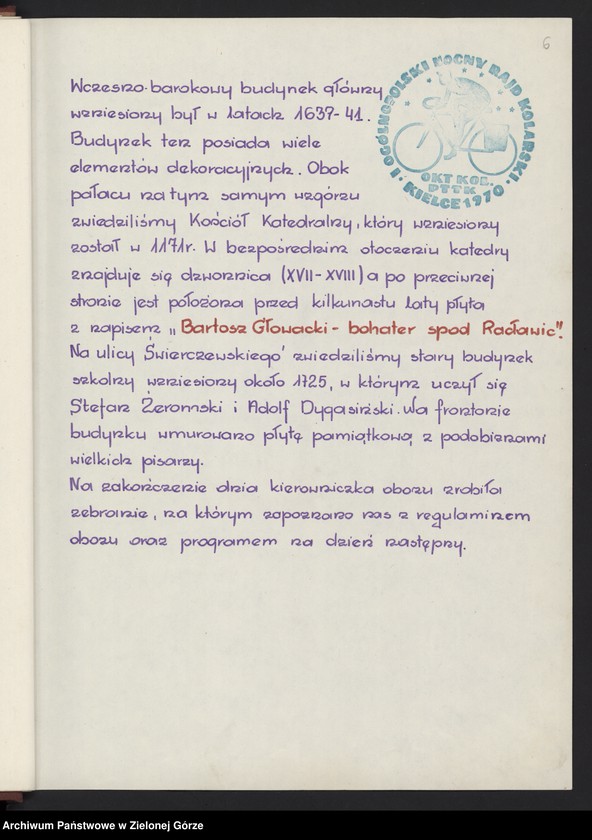 6
I OGÓLNOPOLSKI NOCNY RAJD KOLARSKI
OKT KOL.
PTTK
KIELCE 1970
Wczesno-barokowy budynek główny
wzniesiony był w latach 1637-41.
Budynek ten posiada wiele
elementów dekoracyjnych. Obok
pałacu na tym samym wzgórzu
zwiedziliśmy Kościół Katedralny, który wzniesiony
został w 1171r. W bezpośrednim otoczeniu katedry
znajduje się dzwonnica (XVII-XVIII) a po przeciwnej
stronie jest położona przed kilkunastu laty płyta
z napisem „Bartosz Głowacki - bohater spod Racławic".
Na ulicy Świerczewskiego zwiedziliśmy stary budynek
szkolny wzniesiony około 1725, w którym uczył się
Stefan Żeromski i Adolf Dygasiński. Na frontonie
budynku wmurowano płytę pamiątkową z podobiznami
wielkich pisarzy.
Na zakończenie dnia kierowniczka obozu zrobiła
zebranie, na którym zapoznano nas z regulaminem
obozu oraz programem na dzień następny.
Archiwum Państwowe w Zielonej Górze